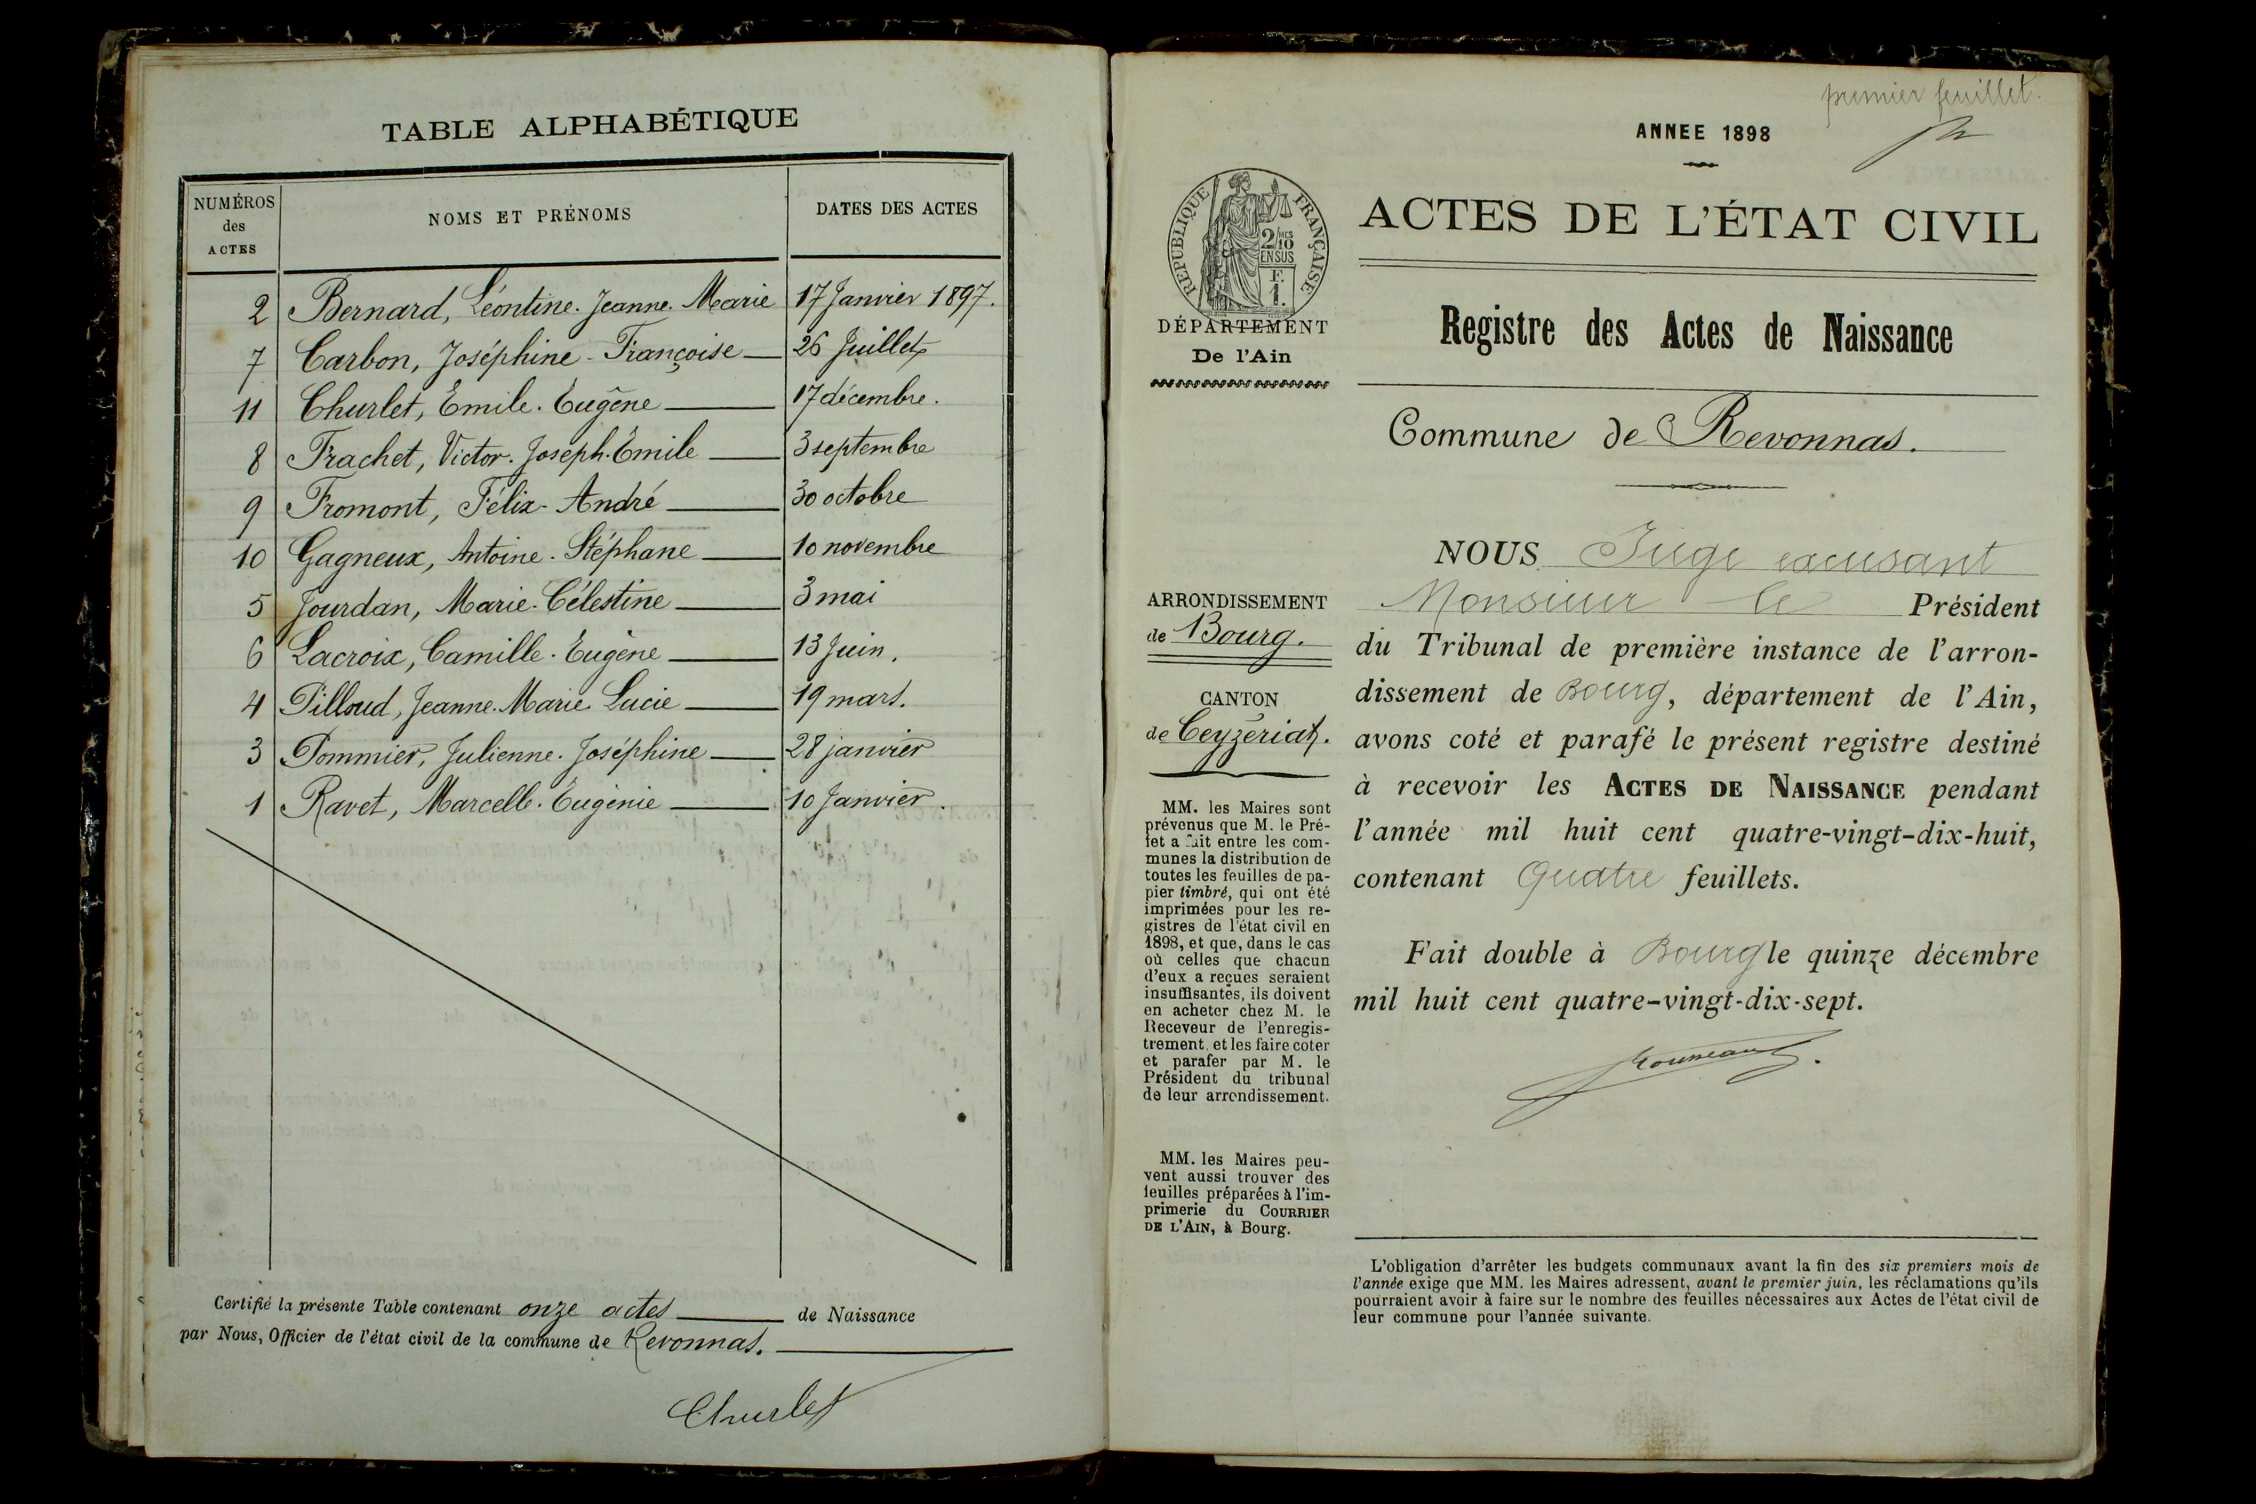 TABLE ALPHABÉTIQUE
NUMÉROS des ACTES | NOMS ET PRÉNOMS | DATES DES ACTES
2 Bernard, Léontine. Jeanne. Marie 17 Janvier 1897.
7 Carbon, Joséphine - Françoise 26 Juillet
11 Churlet, Émile. Eugène 17 décembre.
8 Frachet, Victor. Joseph. Émile 3 septembre
9 Fromont, Félix - André 30 octobre
10 Gagneux, Antoine. Stéphane 10 novembre
5 Jourdan, Marie. Célestine 3 mai
6 Lacroix, Camille. Eugène 13 Juin.
4 Pilloud, Jeanne. Marie Lucie 19 mars.
3 Pommier, Julienne. Joséphine 28 janvier
1 Ravet, Marcelle. Eugénie 10 Janvier.
Certifié la présente Table contenant onze actes de Naissance
par Nous, Officier de l'état civil de la commune de Revonnas.
Churlet
premier feuillet.
ANNEE 1898
RÉPUBLIQUE FRANÇAISE
2/10 MES
EN SUS
F.
1.
DÉPARTEMENT
De l'Ain
ACTES DE L'ÉTAT CIVIL
Registre des Actes de Naissance
Commune de Revonnas.
ARRONDISSEMENT
de Bourg.
CANTON
de Ceyzériat.
MM. les Maires sont
prévenus que M. le Pré-
fet a fait entre les com-
munes la distribution de
toutes les feuilles de pa-
pier timbré, qui ont été
imprimées pour les re-
gistres de l'état civil en
1898, et que, dans le cas
où celles que chacun
d'eux a reçues seraient
insuffisantes, ils doivent
en acheter chez M. le
Receveur de l'enregis-
trement, et les faire coter
et parafer par M. le
Président du tribunal
de leur arrondissement.
MM. les Maires peu-
vent aussi trouver des
feuilles préparées à l'im-
primerie du COURRIER
DE L'AIN, à Bourg.
NOUS Juge excusant
Monsieur le Président
du Tribunal de première instance de l'arron-
dissement de Bourg, département de l'Ain,
avons coté et parafé le présent registre destiné
à recevoir les ACTES DE NAISSANCE pendant
l'année mil huit cent quatre-vingt-dix-huit,
contenant Quatre feuillets.
Fait double à Bourg le quinze décembre
mil huit cent quatre-vingt-dix-sept.
L'obligation d'arrêter les budgets communaux avant la fin des six premiers mois de
l'année exige que MM. les Maires adressent, avant le premier juin, les réclamations qu'ils
pourraient avoir à faire sur le nombre des feuilles nécessaires aux Actes de l'état civil de
leur commune pour l'année suivante.